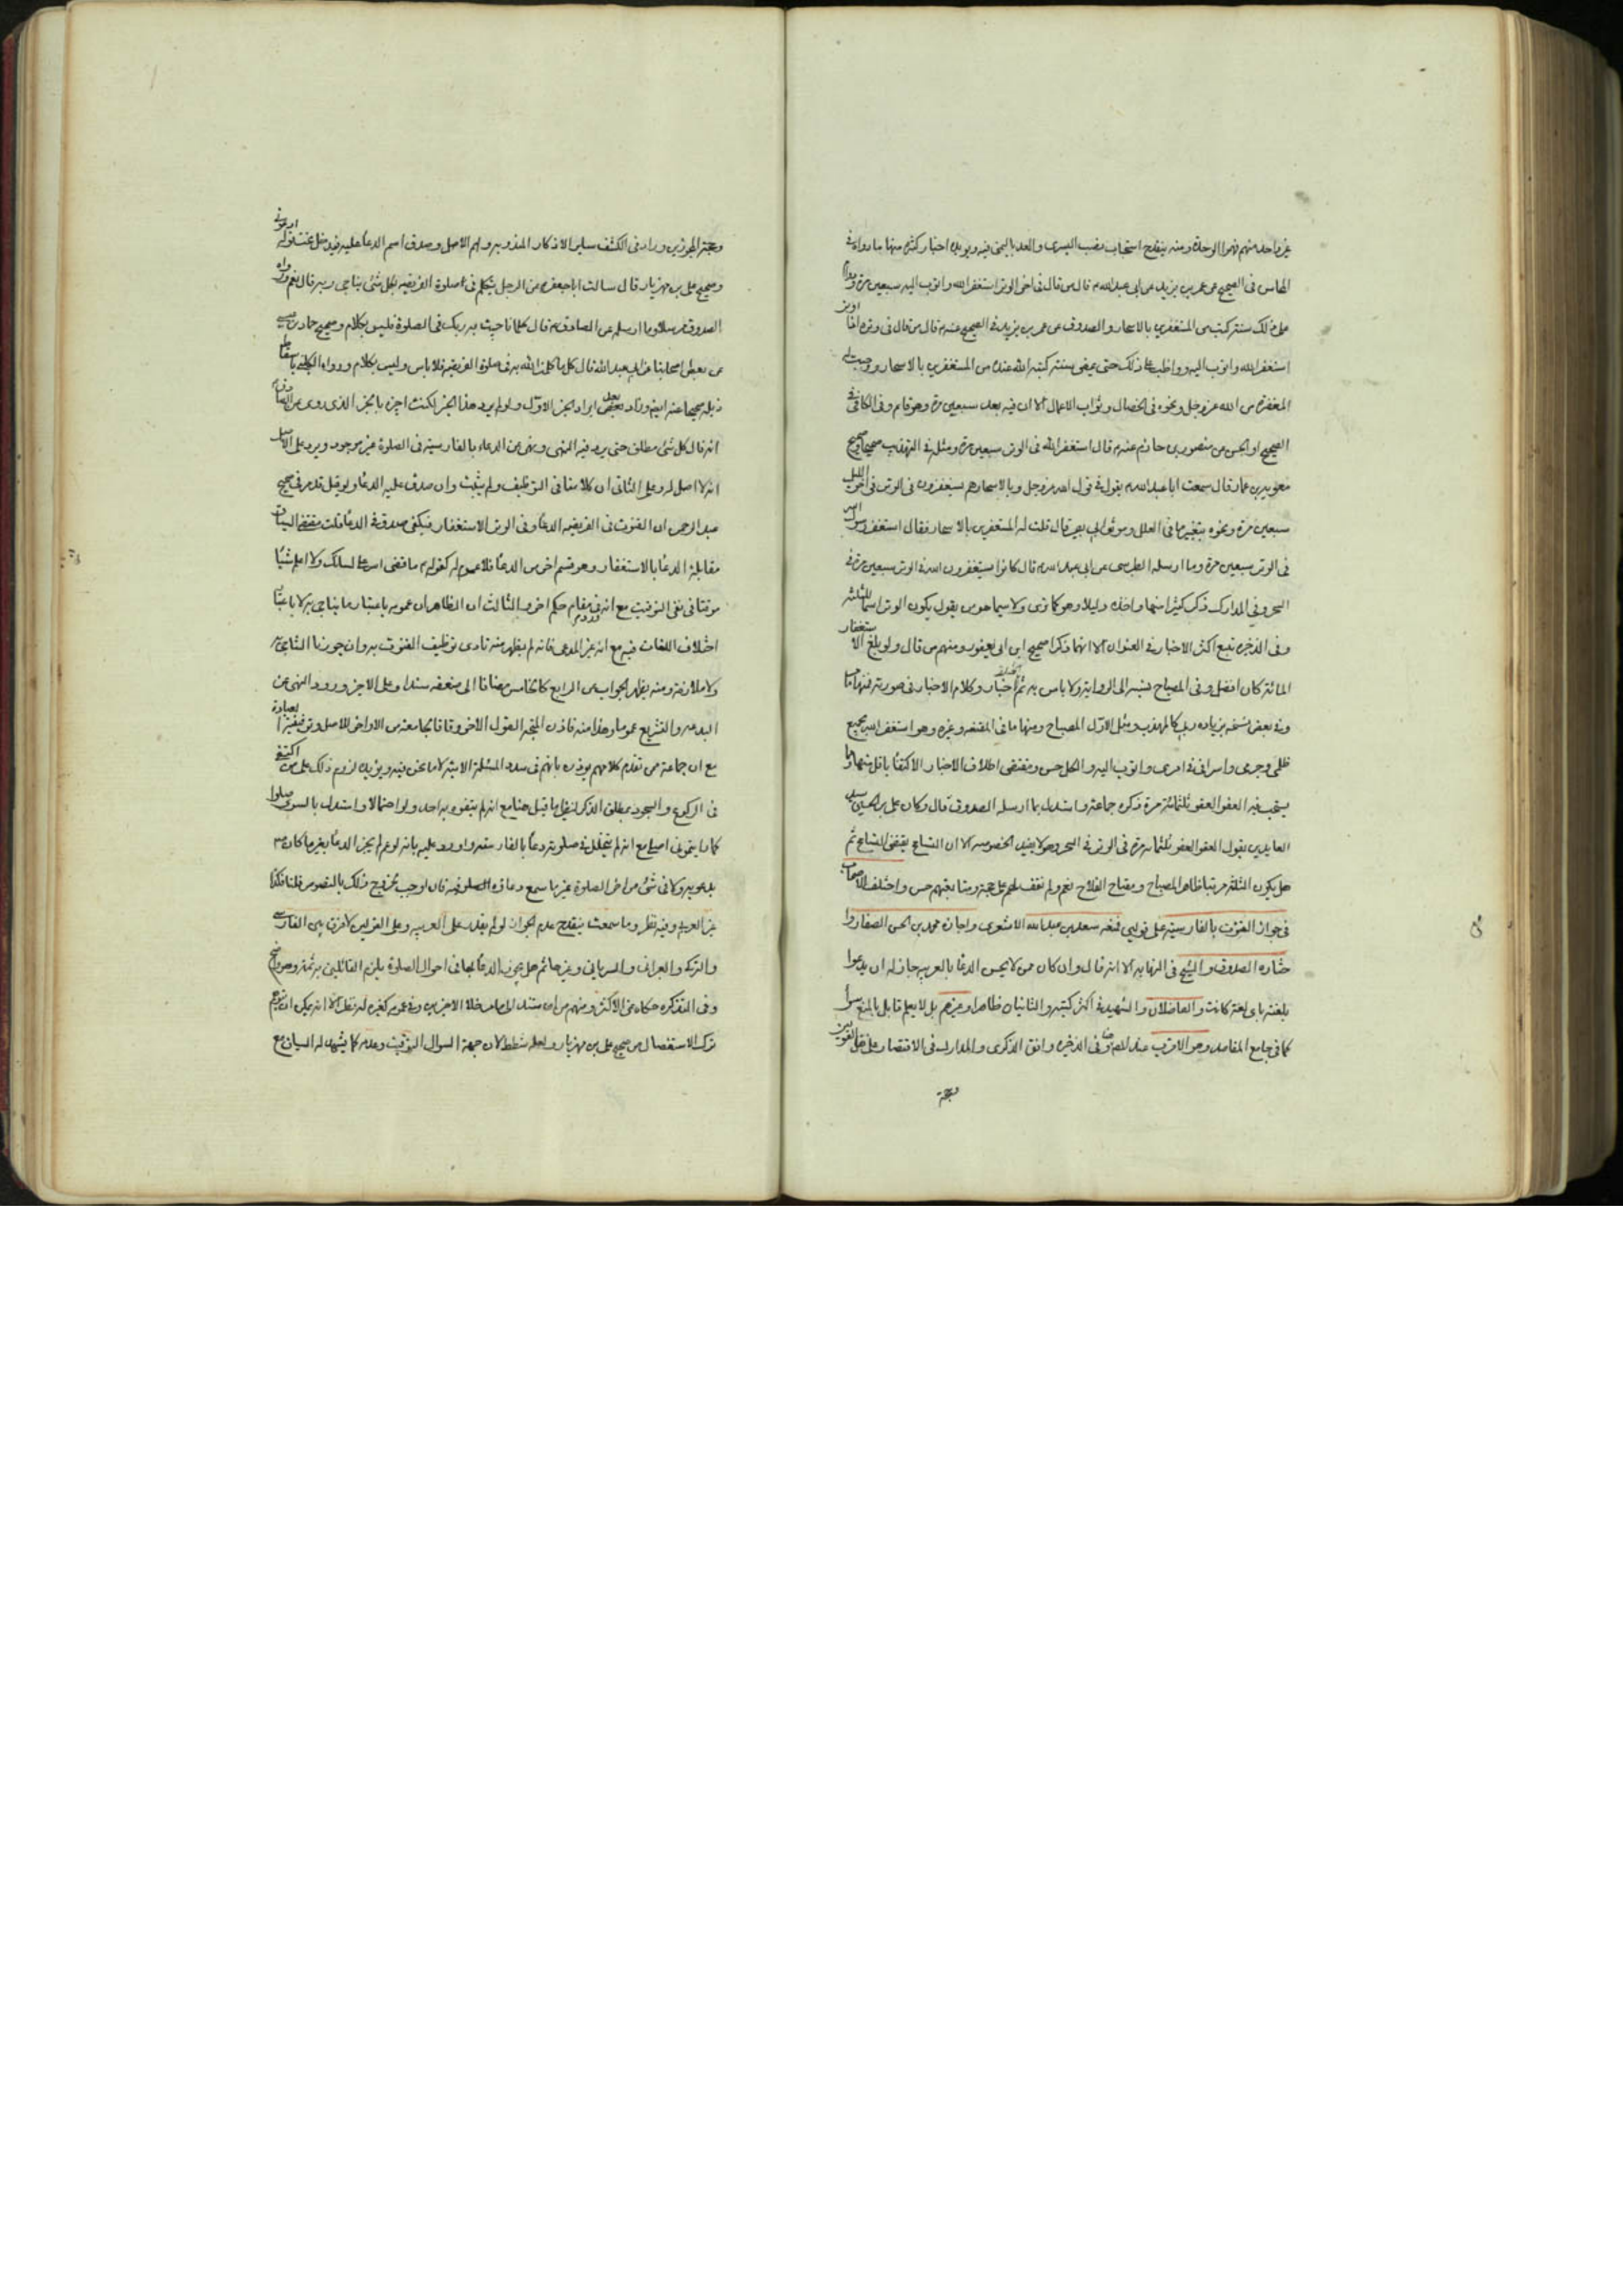 غير واحد منهم فهموا الوحدة ومنه ينقدح استحباب نصب اليسرى والعد باليمنى فيه ويؤيده اخبار كثيرة منها ما رواه في
المحاسن في الصحيح عن عمر بن يزيد عن ابي عبدالله ع قال من قال في اخر الوتر استغفر الله واتوب اليه سبعين مرة ودوام
على ذلك سنة كتب من المستغفرين بالاسحار والصدوق عن عمر بن يزيد في الصحيح عنه ع قال من قال في وتره اذا اوتر
استغفر الله واتوب اليه وواظب على ذلك حتى يمضي سنة كتبه الله عنده من المستغفرين بالاسحار ووجبت له
المغفرة من الله عز وجل ونحوه في الخصال وثواب الاعمال الا ان فيه بعد سبعين مرة وهو قائم وفي الكافي في
الصحيح او الحسن عن منصور بن حازم عنه ع قال استغفر الله في الوتر سبعين مرة ومثله في التهذيب صحيحا وصحيح
معوية بن عمار قال سمعت ابا عبدالله ع يقول في قول الله عز وجل وبالاسحار هم يستغفرون في الوتر في اخر الليل
سبعين مرة ونحوه بتغيير ما في العلل وموثق ابي بصير قال قلت له المستغفرين بالاسحار فقال استغفر رسول الله
في الوتر سبعين مرة وما ارسله الطبرسي عن ابي عبد الله ع قال كانوا يستغفرون الله في الوتر سبعين مرة في
السحر وفي المدارك ذكر كثيرا منها واخذه دليلا وهو كما ترى ولا سيما هو من يقول بكون الوتر اسما للثلثة
وفي الذخيرة تبع اكثر الاخبار في العنوان الا انهما ذكرا صحيح ابن ابي يعفور ومنهم من قال ولو بلغ الاستغفار
المائة كان افضل وفي المصباح نسبه الى الرواية ولا باس به ثم اختلف اخبار وكلام الاخبار في صورته فمنها ما
وفي بعض نسخه بزيادة ربي كالمهذب ومثل الاول المصباح ومنها ما في المقنعه وغيره وهو استغفر الله بجميع
ظلمي وجرمي واسرافي في امري واتوب اليه والكل حسن ومقتضى اطلاق الاخبار الاكتفاء باقل منها وايضا
يستحب فيه العفو العفو ثلثمائة مرة ذكره جماعة واستدل بما ارسله الصدوق قال وكان علي بن الحسين سيد
العابدين يقول العفو العفو ثلثمائه مرة في الوتر في السحر وهو لا يفيد الخصوصية الا ان التسامح يقتضي التسامح ثم
هل يكون الثلثة مرتبا ظاهر المصباح ومفتاح الفلاح نعم ولم نقف لهم على حجة ومتابعتهم حسن واختلف الاصحاب
في جواز القنوت بالفارسية على قولين فمنعه سعد بن عبدالله الاشعري واجازه محمد بن الحسن الصفار وا
ختاره الصدوق والشيخ في النهايه الا انه قال وان كان ممن لا يحسن الدعا بالعربية جاز له ان يدعوا
بلغته باي لغة كانت والفاضلان والشهيد في اكثر كتبه والثانيان ظاهرا وغيرهم بل لا يعلم قايل بالمنع سوا
كما في جامع المقاصد وهو الاقرب عند المص وفي الذخيره وافق الذكرى والمدارك في الاقتصار على نقل القولين
وحجة
وحجة المجوزين وراد في الكشف ساير الاذكار المندوبه والهم الاصل وصدق اسم الدعا عليه فيدخل تحت قوله ادعوني
وصحيح علي بن مهزيار قال سالت ابا جعفر ع عن الرجل يتكلم في صلوة الفريضه بكل شئ يناجي ربه قال نعم ورواه
الصدوق مرسلا وما ارسله عن الصادق ع قال كلما ناجيت به ربك في الصلوة فليس بكلام وصحيح حماد بن عيسى
عن بعض اصحابنا عن ابي عبدالله قال كل ما كلمت الله به في صلوة الفريضه فلا باس وليس بكلام ورواه الكليني باسقاط
ذيله صحيحا عنه ايضا وزاد بعض بعد ايراد الخبر الاول ولو لم يرد هذا الخبر لكنت اجيزه بالخبر الذي روى عن الصادق
انه قال كل شئ مطلق حتى يرد فيه النهي والنهي عن الدعاء بالفارسية في الصلوة غير موجود ويرد على الاصل
انه لا اصل له وعلى الثاني ان كلامنا في التوظيف ولم يثبت وان صدق عليه الدعا ولو قيل قد مر في صحيح
عبد الرحمن ان القنوت في الفريضه الدعا وفي الوتر الاستغفار فيكفي صدق الدعا قلت مقتضى السياق
مقابلة الدعا بالاستغفار وهو قسم اخر من الدعا فلا عموم له كقوله ع ما قضى الله على لسانك ولا اعلم شيئا
موقتا في نفي التوقيت مع انه في مقام حكم اخر والثالث ان الظاهر ان عمومه باعتبار ما يناجي به لا باعتبار
اختلاف اللغات فيه مع انه غير المدعى فانه لم يظهر منه تادي توظيف القنوت به وان جوزنا التناجي به
ولا ملازمة ومنه يظهر الجواب عن الرابع كالخامس مضافا الى ضعفه سندا وعلى الاخير ورود النهي عن
البدعة والتشريع عموما وهذا منه فاذن المتجه القول الاخر وفاقا لجماعة من الاواخر للاصل وتوقيفية العبادة
مع ان جماعة ممن تقدم كلامهم يؤذن بانهم في صدد المسئلة الاتية لا ما نحن فيه ويؤيده لزوم ذلك على من اكتفى
في الركوع والسجود بمطلق الذكر لنظير ما قيل هنا مع انه لم يتفوه به احد ولو احتمالا واستدل بالنبوي صلوا
كما رايتموني اصلي مع انه لم يتخلل في صلوته دعا بالفارسية واورد عليه بانه لو عم لم يجز الدعا بغير ما كان ص
يدعو به وكما في شئ من اجزاء الصلوة غير ما سمع دعاؤه في الصلوة فان اوجب بخروج ذلك بالنصوص قلنا فكذا
غير العربية وفيه نظر وما سمعت ينقدح عدم الجواز لو لم يقدر على العربيه وعلى القولين لا فرق بين الفارسي
والتركي والعبراني والسرياني وغيرها ثم هل يجوز الدعا بها في احوال الصلوة يلزم القائلين به ثمة وهو صريح
وفي التذكرة حكاه عن الاكثر ومنهم من استدل للمقام خلا الاخيرين وفي عمومه كغيره له نظر الا انه يمكن ان يتم
ترك الاستفصال من صحيح علي بن مهزيار ولعله شطط لان جهة السؤال التوقيت وعدمه كما يشهد له السياق مع